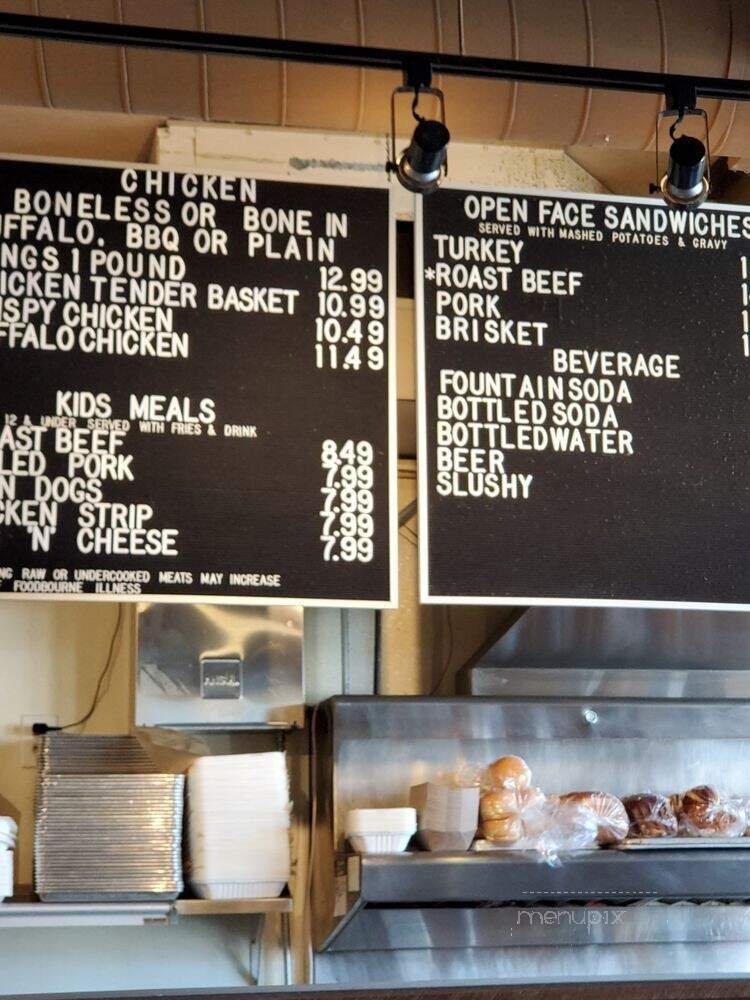 CHICKEN
BONELESS OR BONE IN
FFALO. BBQ OR PLAIN
NGS 1 POUND 12.99
ICKEN TENDER BASKET 10.99
ISPY CHICKEN 10.49
FFALO CHICKEN 11.49
KIDS MEALS
12 & UNDER SERVED WITH FRIES & DRINK
AST BEEF 8.49
LED PORK 7.99
N DOGS 7.99
CKEN STRIP 7.99
'N' CHEESE 7.99
NG RAW OR UNDERCOOKED MEATS MAY INCREASE
FOODBOURNE ILLNESS
OPEN FACE SANDWICHES
SERVED WITH MASHED POTATOES & GRAVY
TURKEY 1
*ROAST BEEF 1
PORK 1
BRISKET 1
BEVERAGE
FOUNTAIN SODA
BOTTLED SODA
BOTTLED WATER
BEER
SLUSHY
ANSUL
menupix